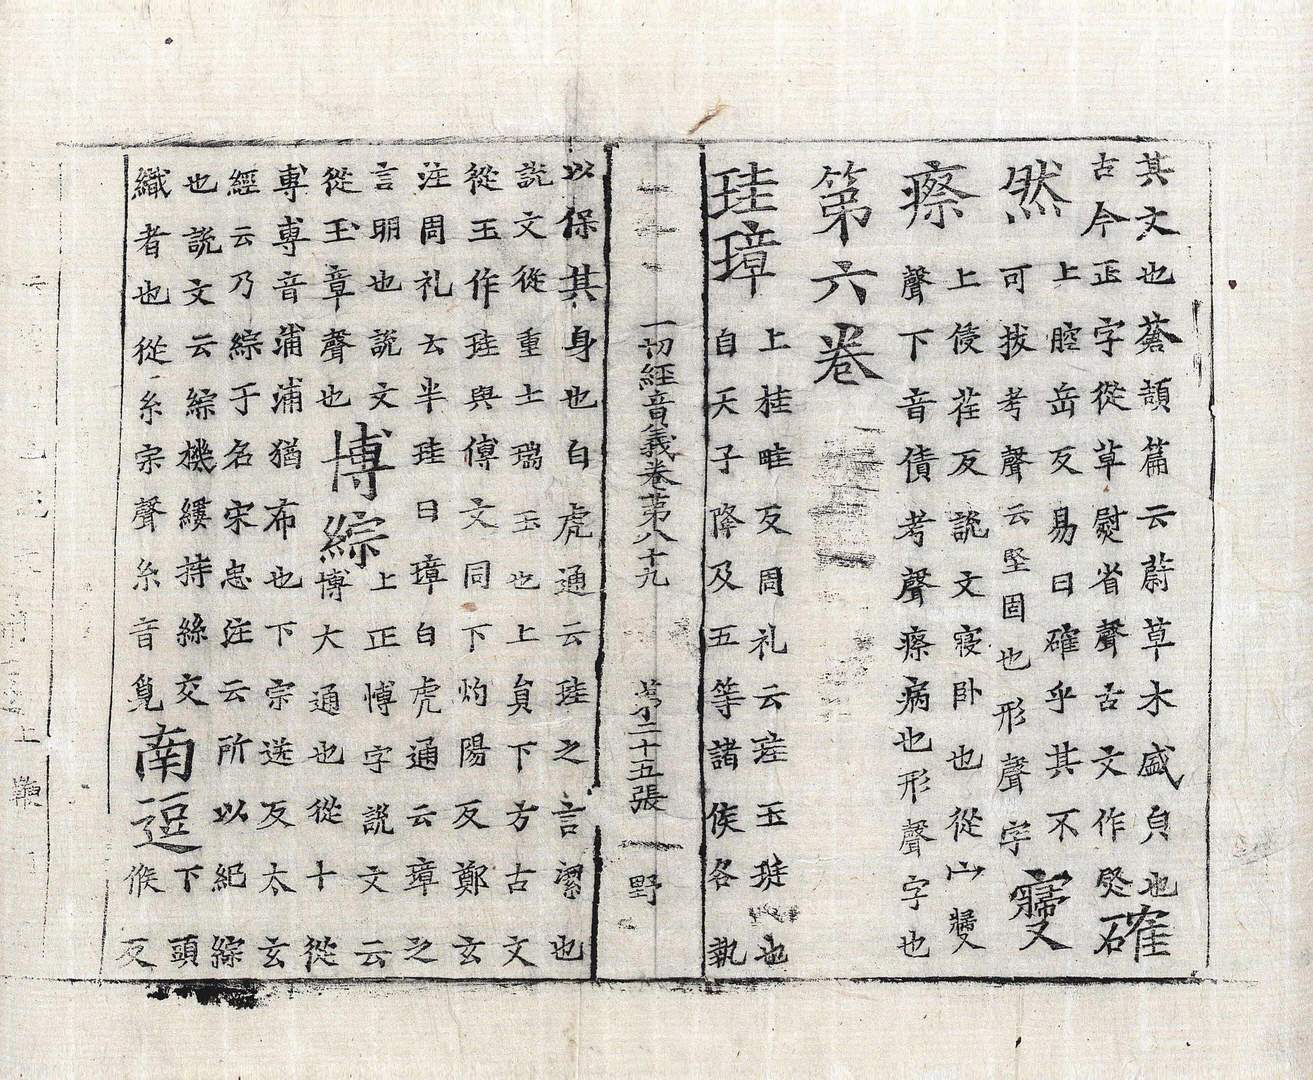 其文也蒼頡篇云蔚草木盛皃也
古今正字從草慰省聲古文作㷉
確
然
上腔岳反易曰確乎其不
可拔考聲云堅固也形聲字
寢
瘵
上侵荏反說文寢卧也從宀㝱
聲下音債考聲瘵病也形聲字也
第六卷
珪璋
上桂畦反周礼云珪玉珽也
自天子降及五等諸侯各執
一切經音義卷第八十九 第二十五張 野
以保其身也白虎通云珪之言潔也
說文從重土瑞玉也上負下方古文
從玉作珪與傳文同下灼陽反鄭玄
注周礼云半珪曰璋白虎通云璋之
言明也說文
從玉章聲也
博綜
上正愽字說文云
博大通也從十從
尃尃音浦浦猶布也下宗送反太玄
經云乃綜于名宋忠注云所以紀綜
也說文云綜機縷持絲交
織者也從糸宗聲糸音覓
南逗
下頭
候反